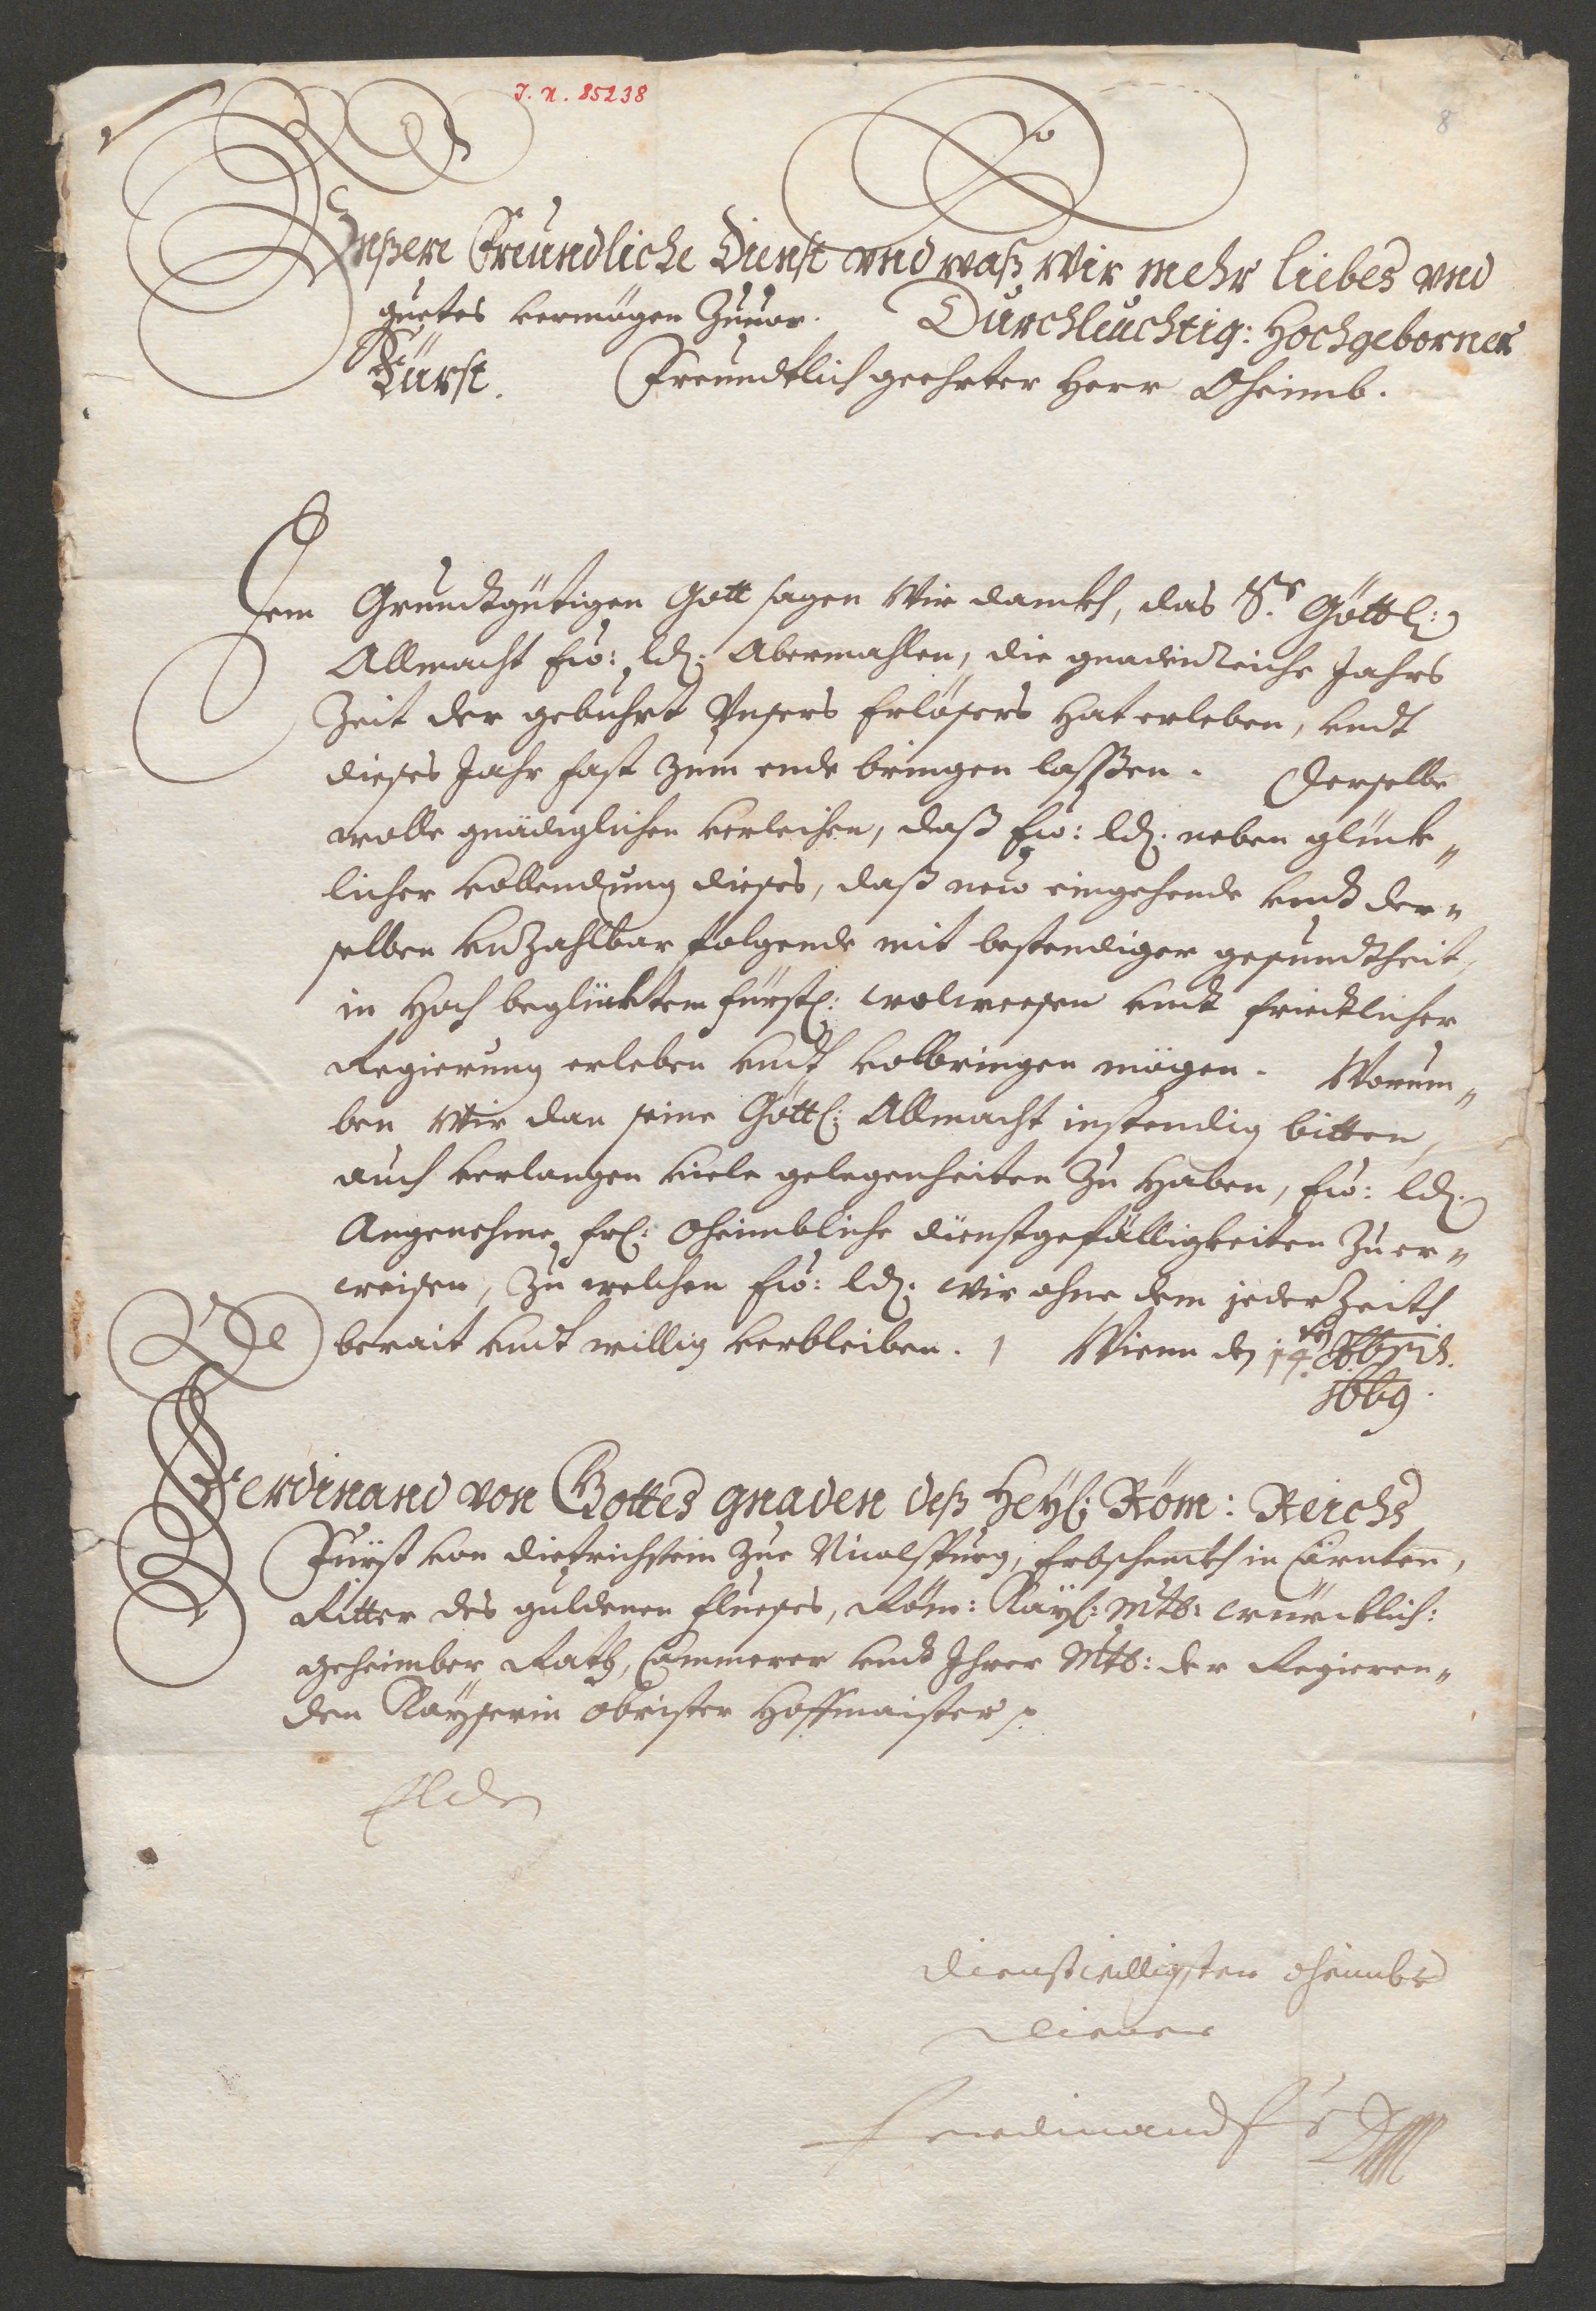 J. N. 85238
8
Vnßere Freundliche Dienst vnd waß Wir mehr liebes vnd
guetes vermögen Zuuor. Durchleuchtig: Hochgeborner
Fürst. Freundtlich geehrter Herr Oheimb.
Dem Grundtgütigen Gott sagen Wir danckh, das Sr. Göttl:
Allmacht Ew: Ld: Abermahlen, die gnadenreiche Jahrs
Zeit der gebuhrt Vnsers Erlösers hat erleben, vndt
dieses Jahr fast zum ende bringen lassßen. Derselbe
wolle gnädiglichen verleihen, daß Ew: Ld: neben glück„
licher vollendung dieses, daß new eingehende vndt der„
selben vnzahlbar folgende mit bestendiger gesundtheit,
in Hoch beglücktem fürstl: wolweesen vndt friedtlicher
Regierung erleben vndt volbringen mögen. Worum„
ben Wir dan seine Göttl: Allmacht instendig bitten,
auch verlangen viele gelegenheiten Zu Haben, Ew: Ld:
Angenehme frl: Oheimbliche dienstgefälligkeiten Zu er„
weisen, Zu welchen Ew: Ld: Wir ohne dem jeder Zeith
berait vndt willig verbleiben. Wienn den 14ten Xbris.
1669.
Ferdinand von Gottes gnaden deß Heyl: Röm: Reichs
Fürst von Dietrichstein zue Nicolspurg, Erbschenckh in Cärnten,
Ritter des guldenen fluesses, Röm: Kayl: Mtt: würcklich:
geheimber Rath, Cammerer vndt Ihrer Mtt: der Regieren„
den Kayserin Obrister Hoffmaister
ELdn
dienstwilligster oheimb
diener
Ferdinand F v D